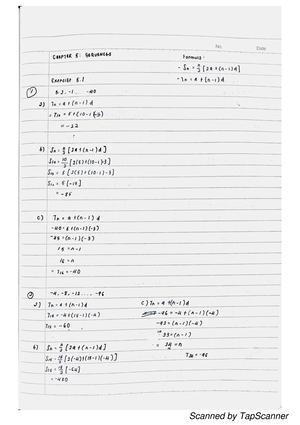 No.
Date
CHAPTER 5: SEQUENCES
Formula:
- Sn = n/2 [2a + (n-1)d]
- Tn = a + (n-1)d
EXERCISE 5.1
①
5, 2, -1, ... -40
a) Tn = a + (n-1)d
= -22
b) Sn = n/2 [2a + (n-1)d]
S10 = 10/2 [2(5) + (10-1)-3]
S10 = 5 [2(5) + (10-1)-3]
S10 = 5 [-17]
= -85
c) Tn = a + (n-1)d
-40 = 5 + (n-1)(-3)
-45 = (n-1)(-3)
15 = n-1
16 = n
= T16 = -40
②
-4, -8, -12, ... -96
a) Tn = a + (n-1)d
T15 = -4 + (15-1)(-4)
T15 = -60
b) Sn = n/2 [2a + (n-1)d]
S15 = 15/2 [2(-4) + (15-1)(-4)]
S15 = 15/2 [-64]
= -480
c) Tn = a + (n-1)d
-96 = -4 + (n-1)(-4)
Scanned by TapScanner